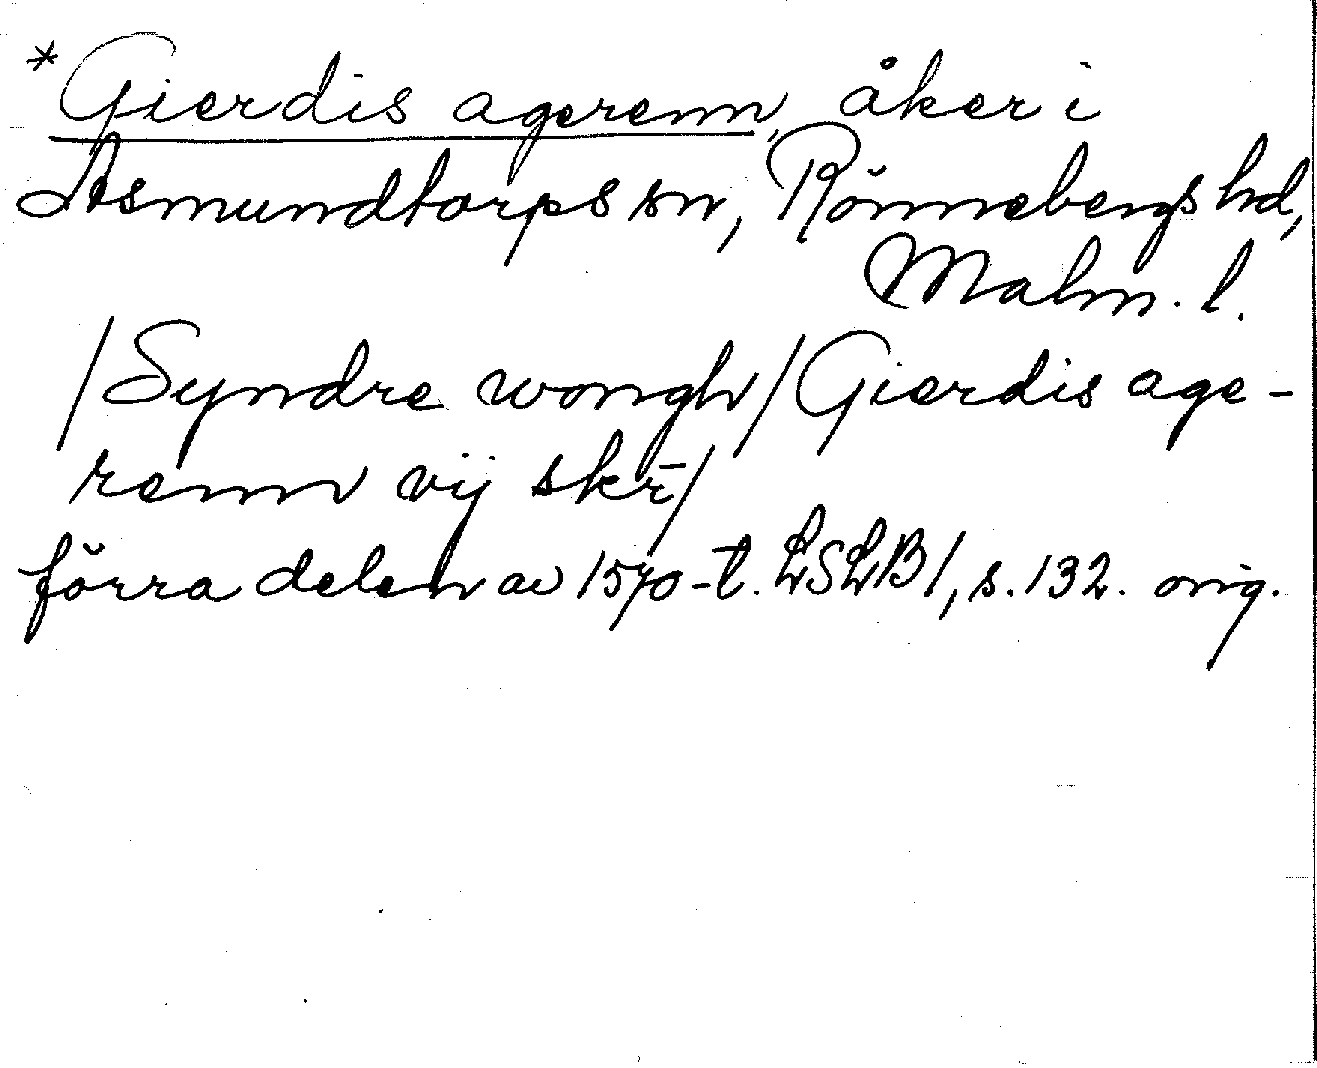 *Gierdis agerenn, åker i
Asmundtorps sn, Rönnebergs hd,
Malm. l.
/Syndre wongh/Gierdis age-
renn vij skr̄/
förra delen av 1570-t. LSLB1, s. 132. orig.